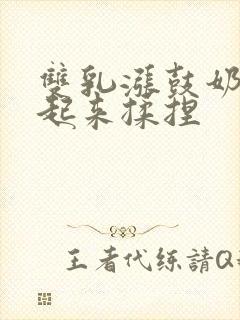 雙乳漲鼓奶
起来揉捏
王者代练請Q